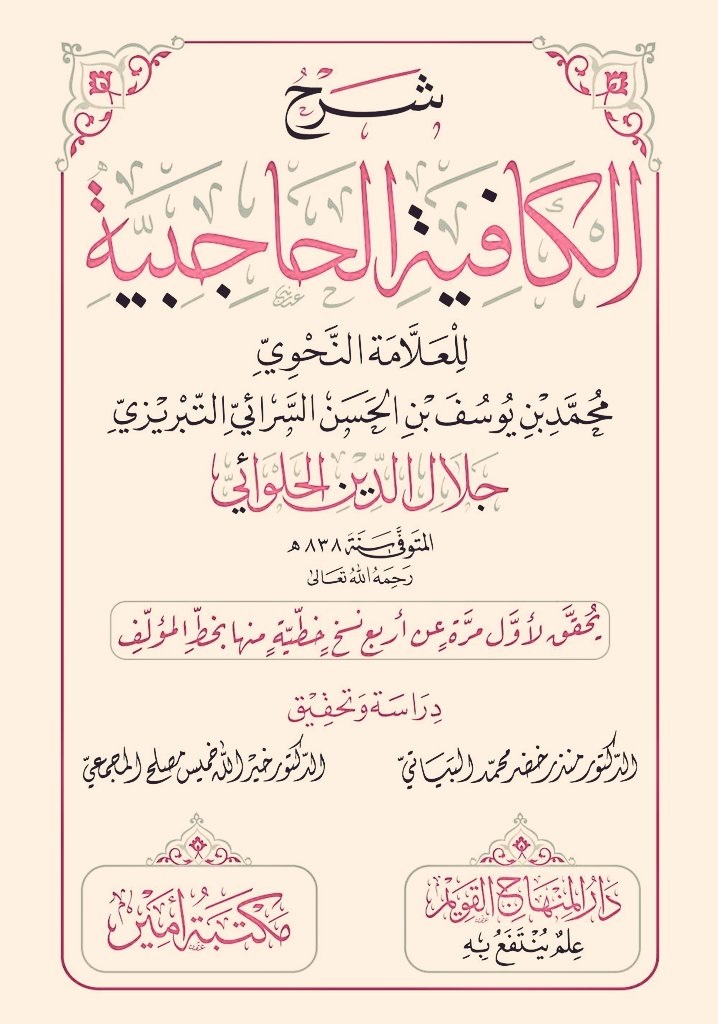 شرح
الكافية الحاجبية
للعلامة النحوي
محمد بن يوسف بن الحسن السرائي التبريزي
جلال الدين الحلوائي
المتوفى سنة ٨٣٨ هـ
رحمه الله تعالى
يحقق لأول مرة عن أربع نسخ خطية منها بخط المؤلف
دراسة وتحقيق
الدكتور منذر خضر محمد البياتي
الدكتور خير الله خميس مصلح المجمعي
دار المنهاج القويم
علم ينتفع به
مكتبة أمير